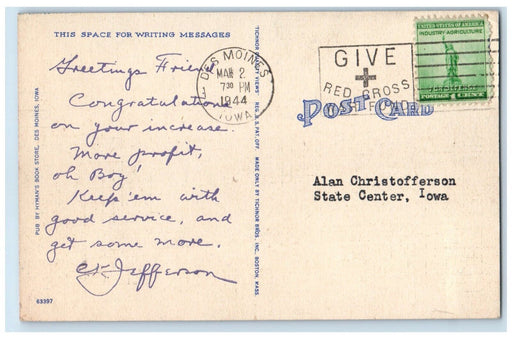 THIS SPACE FOR WRITING MESSAGES
Greetings Friend
Congratulations
on your increase.
More profit,
oh Boy!
Keep 'em with
good service, and
get some more.
Jefferson
PUB BY HYMAN'S BOOK STORE, DES MOINES, IOWA
63397
MADE ONLY BY TICHNOR BROS. INC. BOSTON, MASS.
REG. U.S. PAT. OFF.
DES MOINES
MAR 2
730 PM
1944
IOWA
GIVE
RED CROSS
FUND
UNITED STATES OF AMERICA
INDUSTRY AGRICULTURE
FOR DEFENSE
POSTAGE
POST CARD
Alan Christofferson
State Center, Iowa